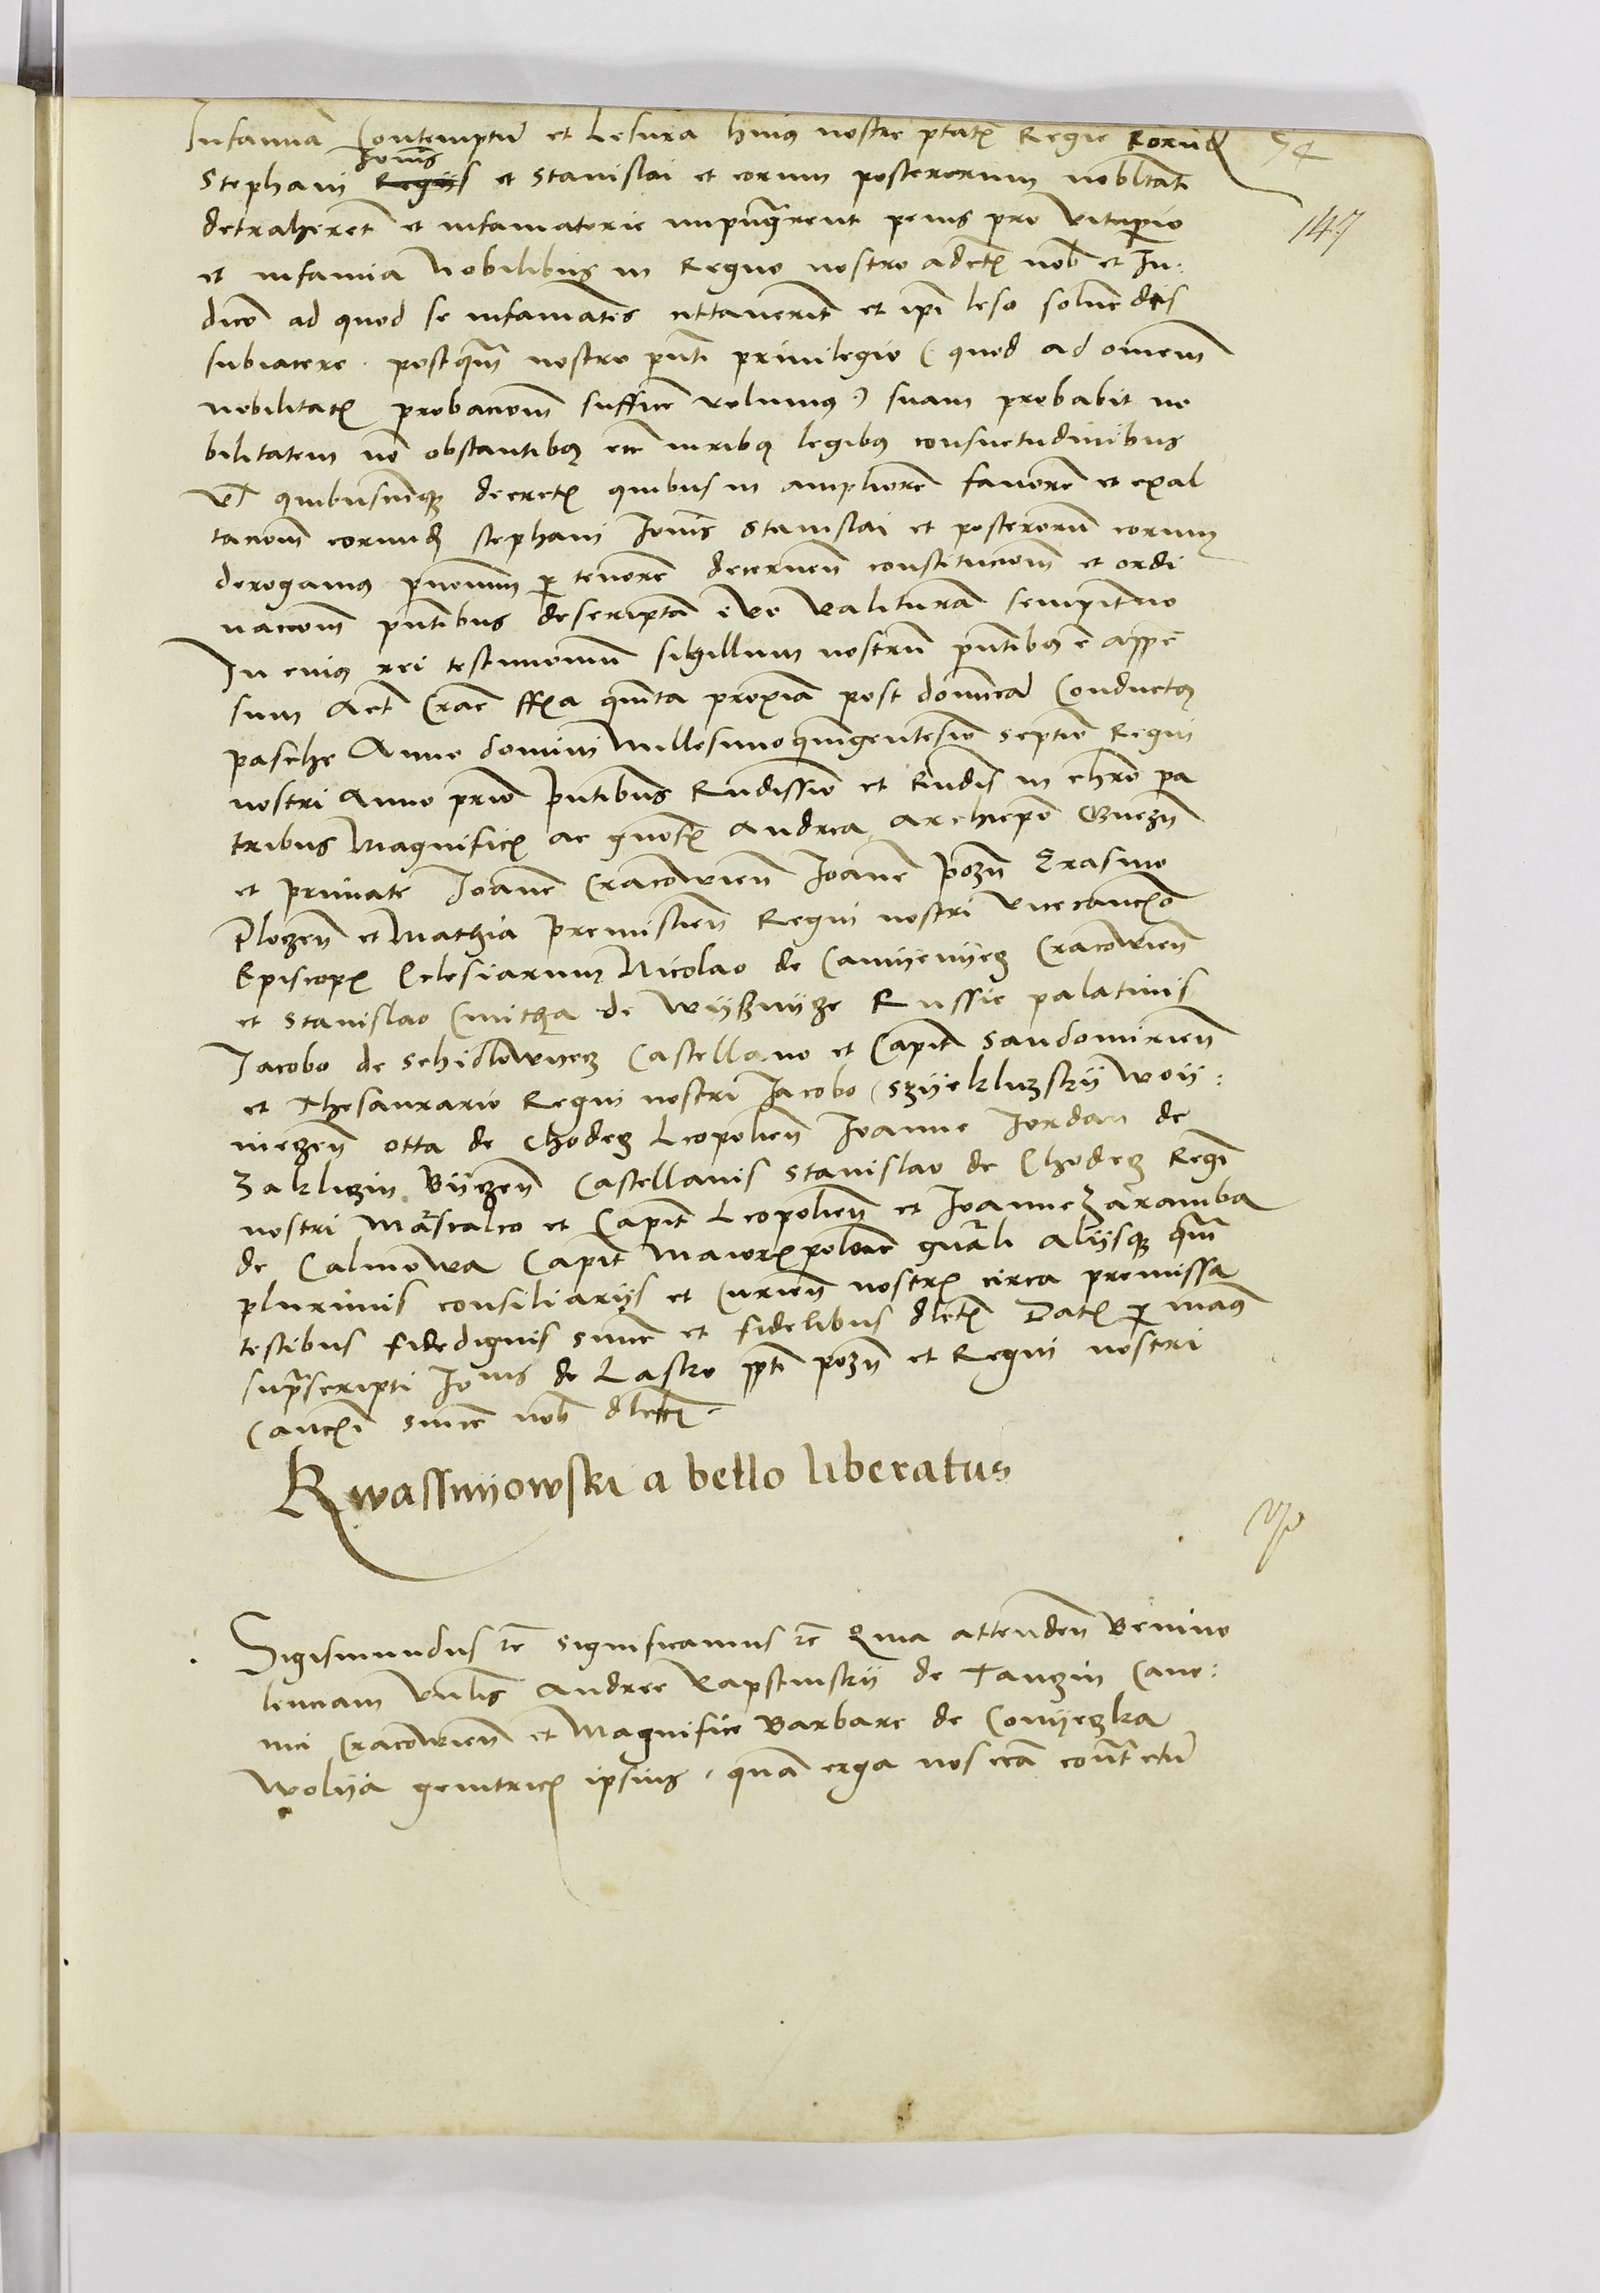 Infamia Contemptu et Lesura huius nostre ptatis Regie Eorund
74
Stephani Regis Ioannis et Stanislai et eorum posterorum nobilitati
147
detraheret et infamatorie impugnarent penis pro vituperio
et infamia Nobilibus in Regno nostro adctis nob et Iu:
dico ad quod se infamates citaverit et ipi leso solvedis
subiacere. postquam nostro pnti privilegio (quod ad omem
nobilitatis probacionem sufficere volumus) suam probabit no
bilitatem no obstantibus ecc iuribus legibus consuetudinibus
vl quibuscunque decretis quibus in ampliorem favorem et exal
tacionem eorund Stephani Ioannis Stanislai et posterorum eorum
derogamus pncium per tenorem decernen constitucionem et ordi
nacionem pntibus descriptam evo valituram sempiterno
In cuius rei testimonium sigillum nostrum pntibus e appe
sum Act Crac feria quinta proxima post dominicam Conductus
pasche Anno domini Millesimo quingentesimo septimo Regni
nostri Anno primo pntibus Rndissimo et Rndis in chro pa
tribus Magnificis ac gnosis Andrea Archiepo Gnezn
et primate Ioanne Cracovien Ioanne Pozn Erasmo
Plocen et Mathia Premislien Regni nostri vicecancrio
Episcopis Eclesiarum Nicolao de Camyenyecz Cracovien
et Stanislao Cmitha de Wyssnycze Russie palatinis
Iacobo de Schidlowyecz Castellano et Capit Sandomirien
et Thesaurario Regni nostri Iacobo Szyekluczsky Woy:
niczen Otta de Chodecz Leopolien Ioanne Iordan de
Zakliczin Byeczen Castellanis Stanislao de Chodecz Regni
nostri Marscalco et Capit Leopolien et Ioanne Zaramba
de Calinowa Capit Maioris polonie gnrali Alijsque quam
plurimis consiliarijs et Curien nostris circa premissa
testibus fidedignis since et fidelibus dilectis Datis per manus
suprascripti Ioannis de Lasko ppti pozn et Regni nostri
Cancrii since nob dilecti
Kwassnyowski a bello liberatus
Sigismundus etc significamus etc Quia attenden Benivo
lenciam Vnlis Andree Rapstinsky de Tanczin Cano:
nici Cracovien et Magnifice Barbare de Conyeczka
Wolya genitricis ipsius, quam erga nos